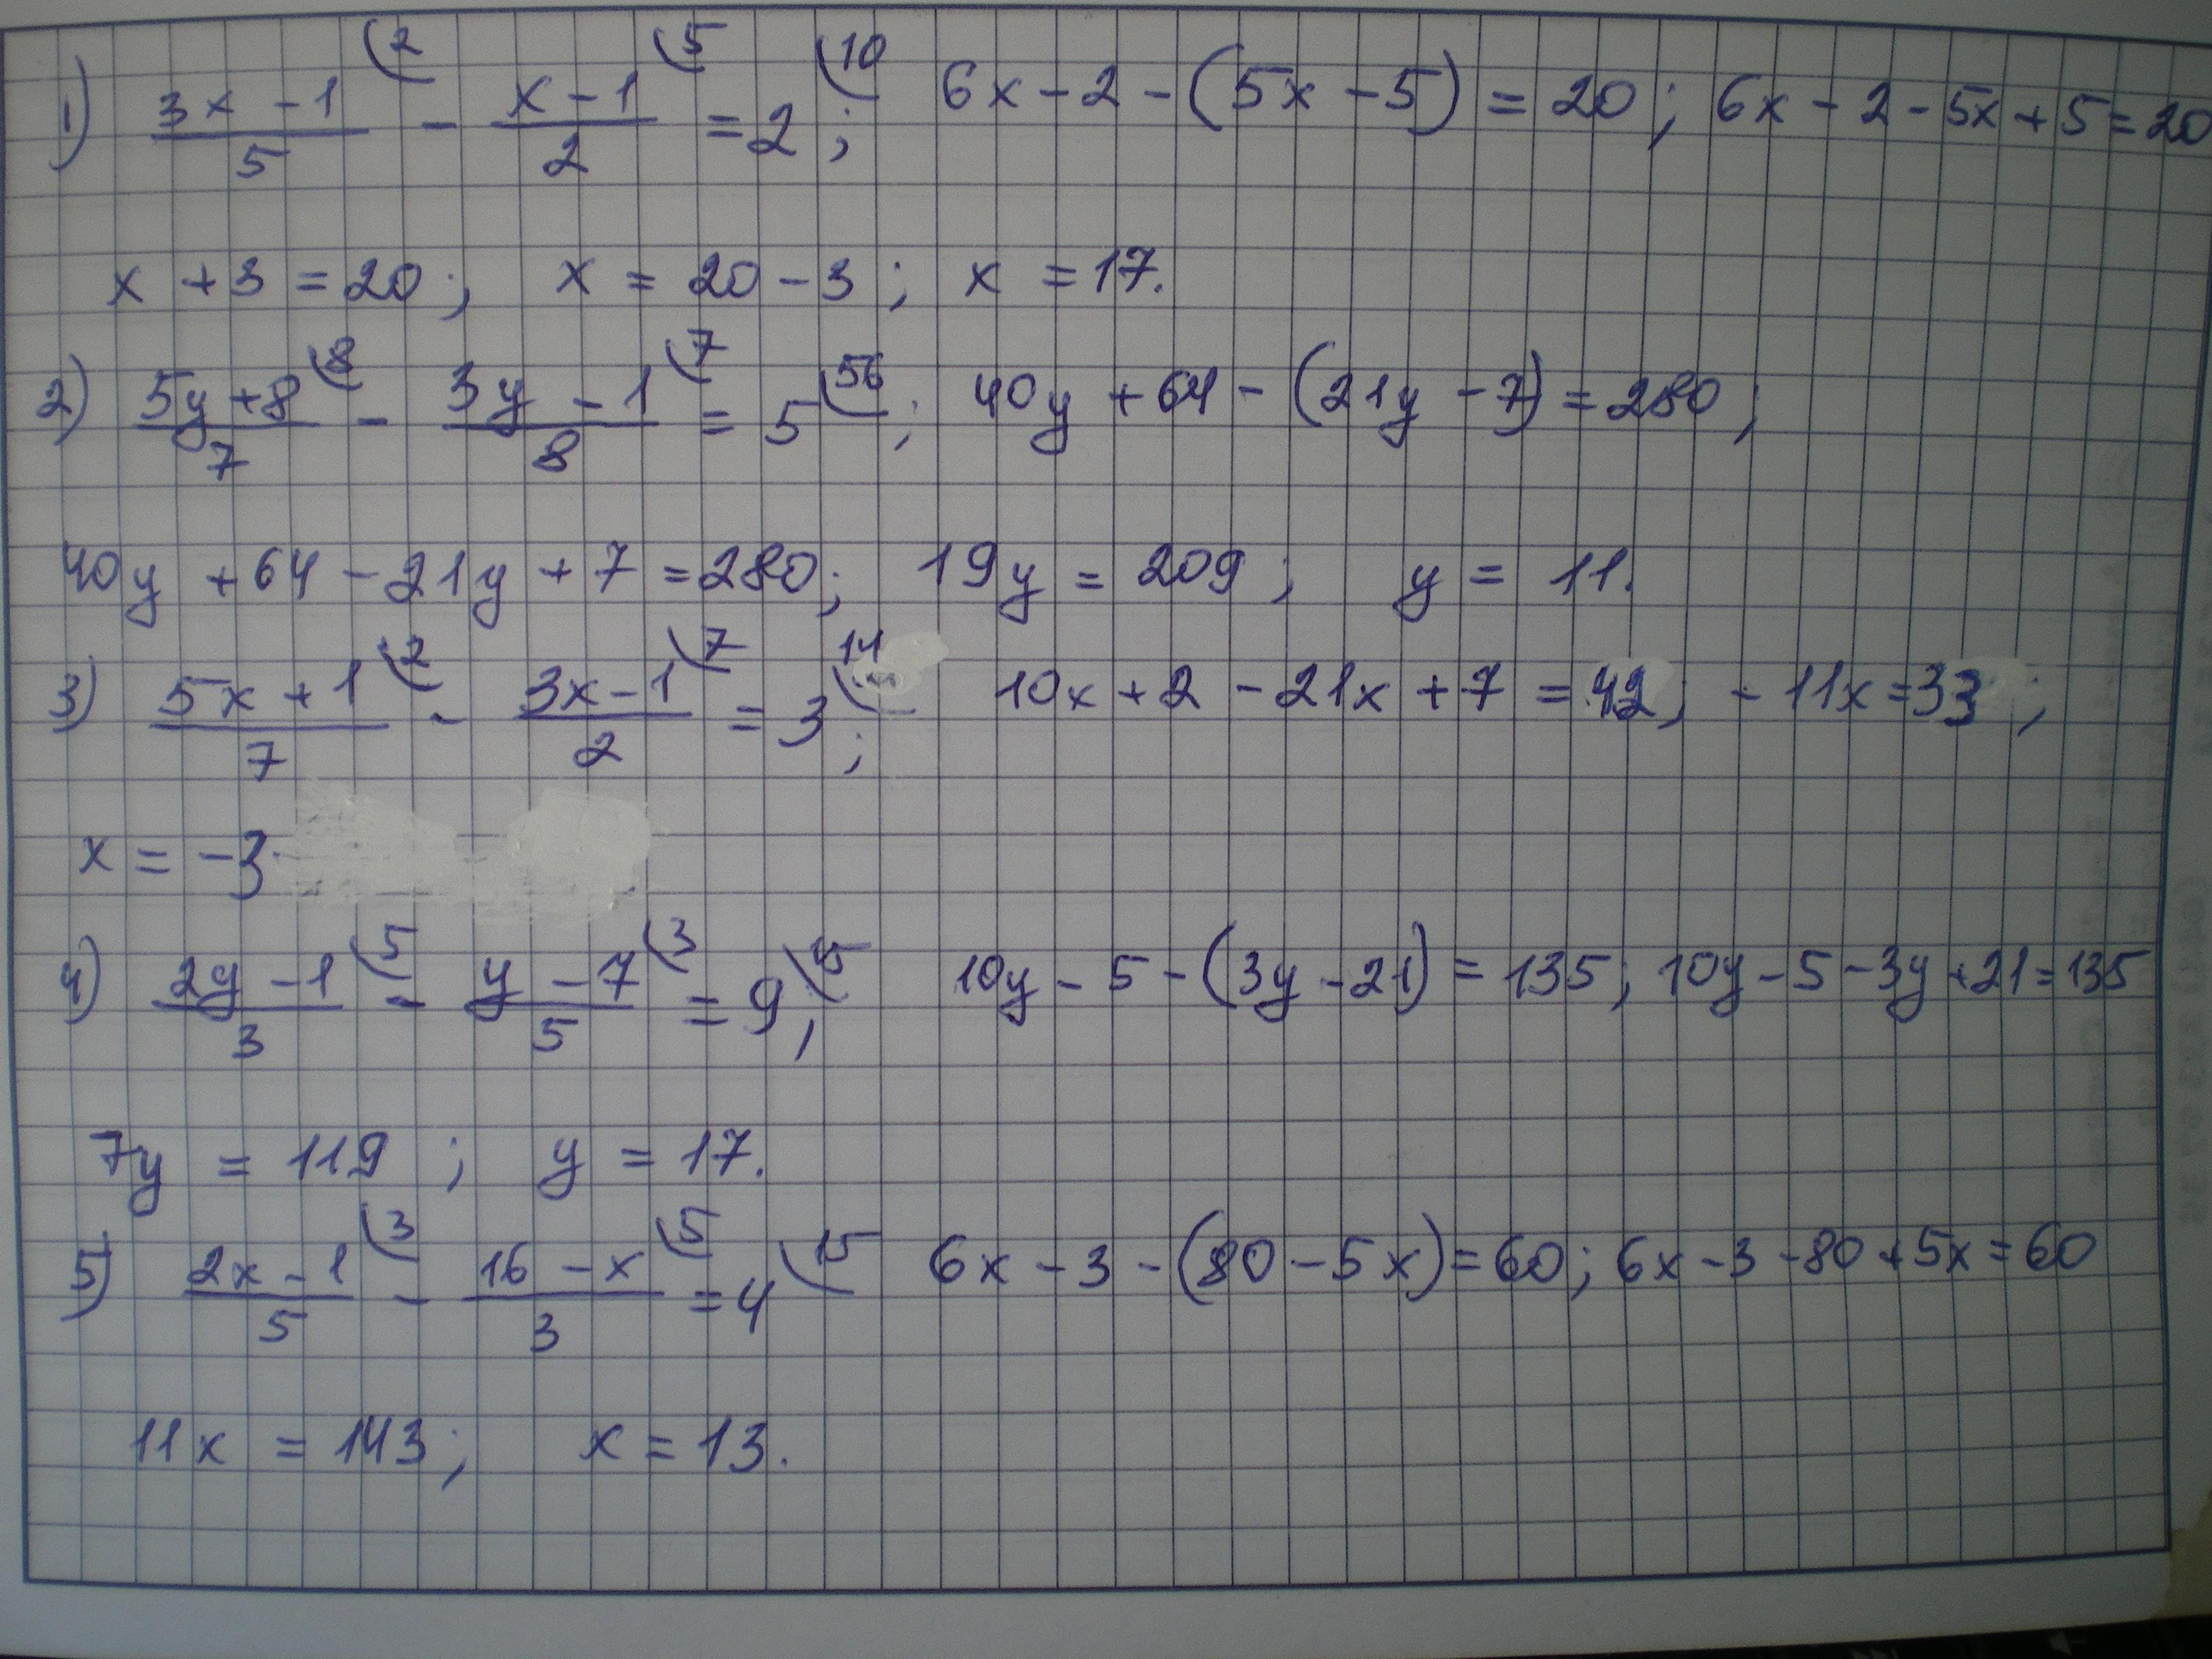 1) (3x - 1)/5 (2 - (x - 1)/2 (5 = 2 (10 ; 6x - 2 - (5x - 5) = 20 ; 6x - 2 - 5x + 5 = 20
x + 3 = 20 ; x = 20 - 3 ; x = 17.
2) (5y + 8)/7 (8 - (3y - 1)/8 (7 = 5 (56 ; 40y + 64 - (21y - 7) = 280 ;
40y + 64 - 21y + 7 = 280 ; 19y = 209 ; y = 11.
3) (5x + 1)/7 (2 - (3x - 1)/2 (7 = 3 (14 ; 10x + 2 - 21x + 7 = 42 ; - 11x = 33 ;
x = -3
4) (2y - 1)/3 (5 - (y - 7)/5 (3 = 9 (15 ; 10y - 5 - (3y - 21) = 135 ; 10y - 5 - 3y + 21 = 135
7y = 119 ; y = 17.
5) (2x - 1)/5 (3 - (16 - x)/3 (5 = 4 (15 6x - 3 - (80 - 5x) = 60 ; 6x - 3 - 80 + 5x = 60
11x = 143 ; x = 13.